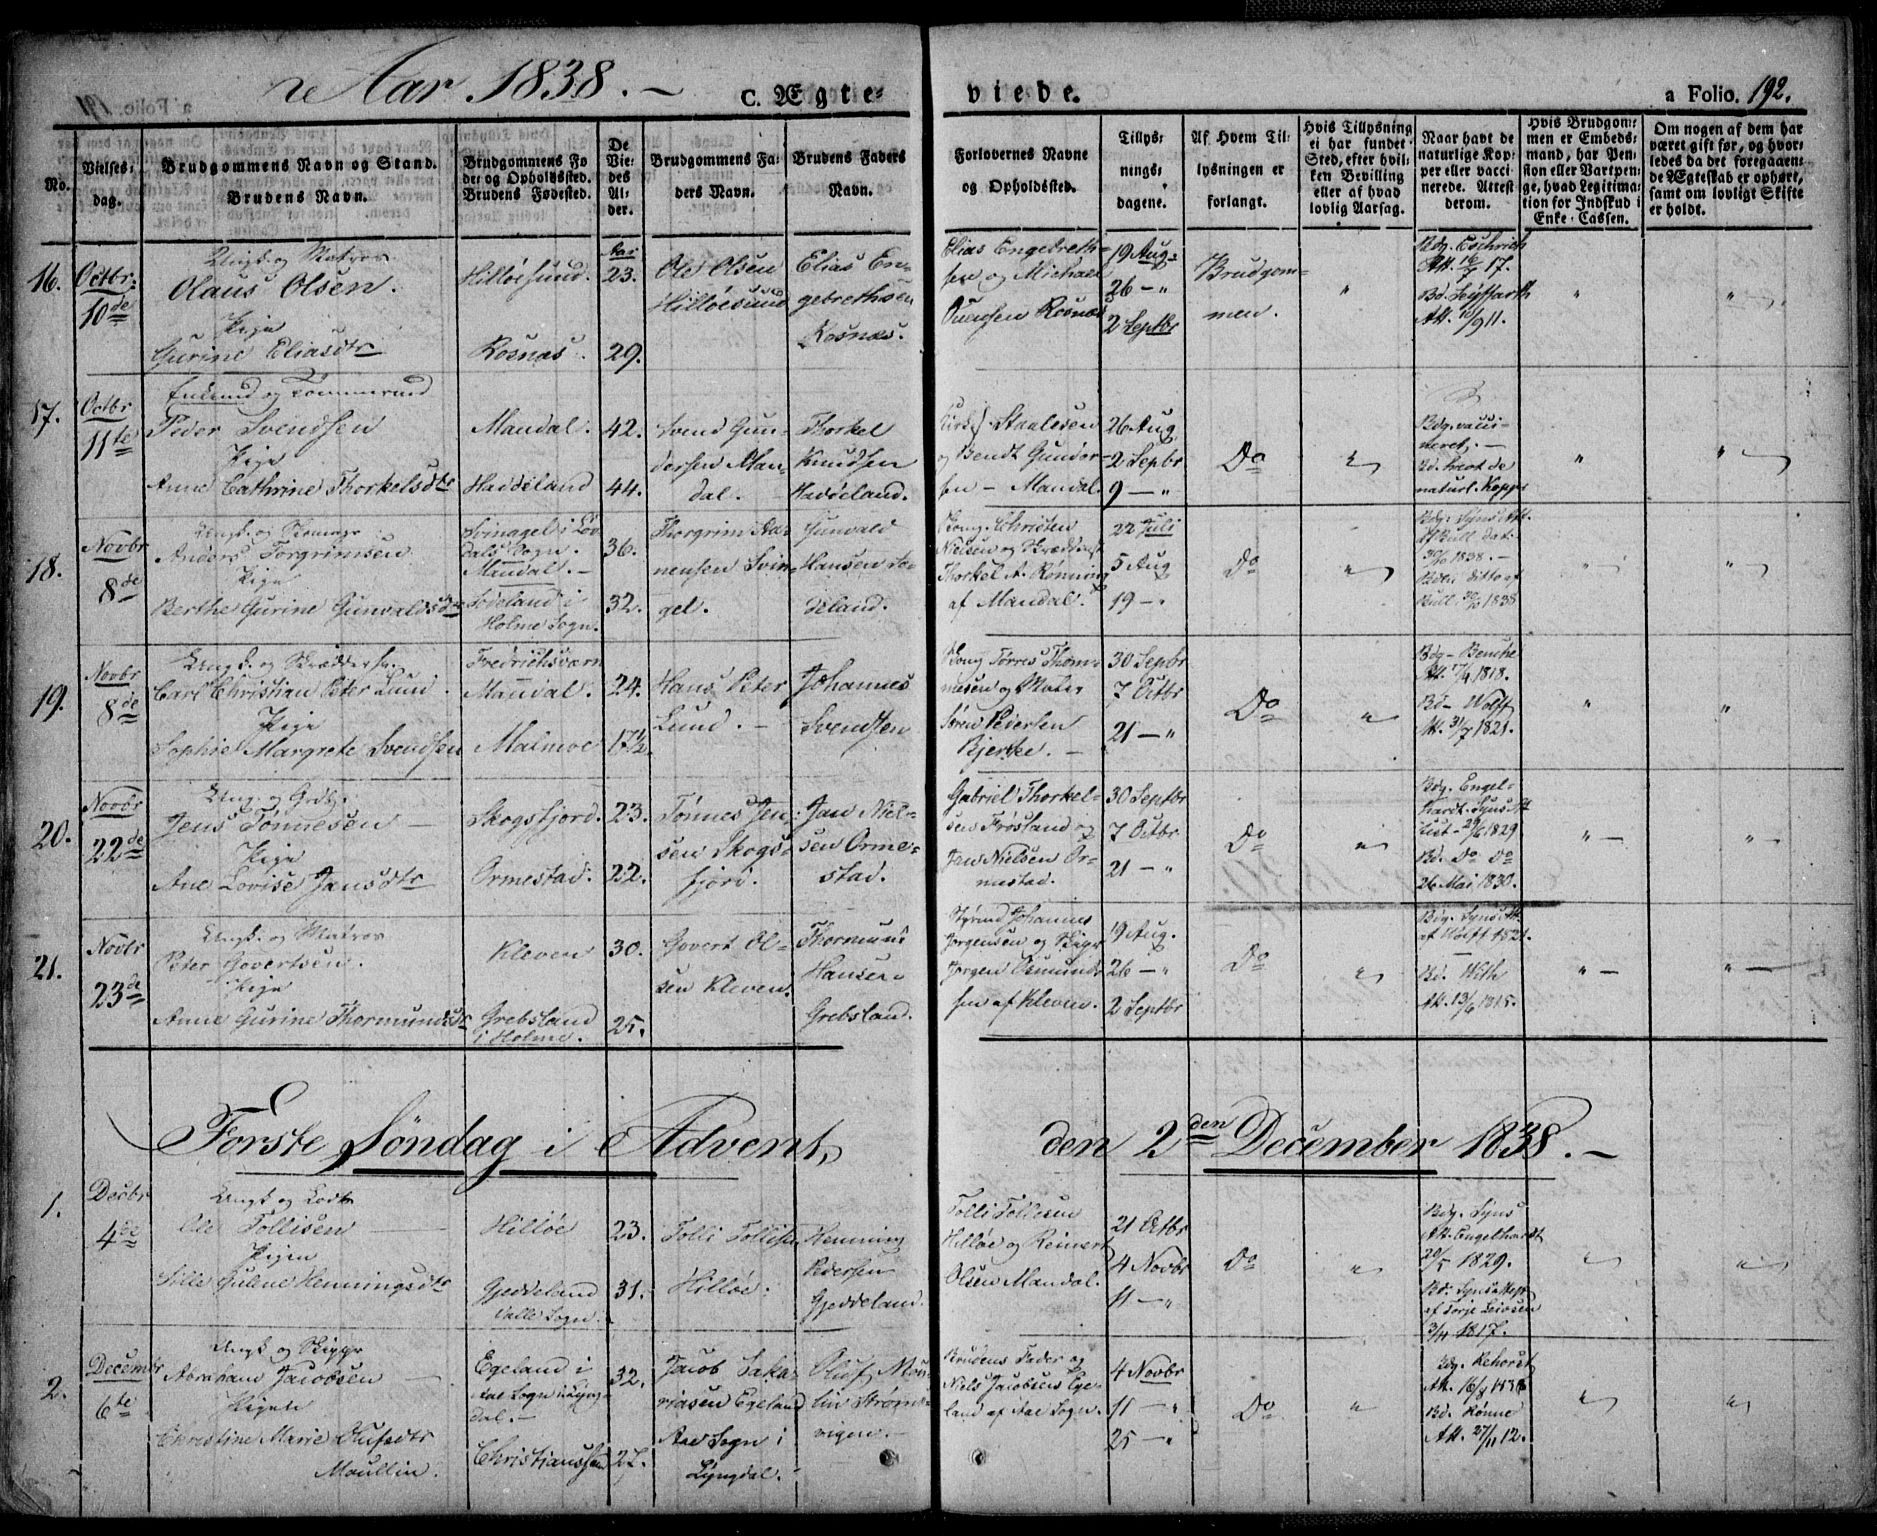 Aar 1838. —
C. Ægte-
viede.
a Folio. 192.
No.
Vielses-
dag.
Brudgommens Navn og Stand.
Brudens Navn.
Brudgommens Fø
de- og Opholdssted.
Brudens Fødested.
De
Vie-
des
Al-
der.
Brudgommens Fa-
ders Navn.
Brudens Faders
Navn.
Forlovernes Navne
og Opholdssted.
Tillys-
nings-
dagene.
Af Hvem Til-
lysningen er
forlangt.
Hvis Tillysning
ei har fundet
Sted, efter hvil-
ken Bevilling
eller af hvad
lovlig Aarsag.
Naar havt de
naturlige Kop-
per eller vacci-
nerede. Attest
derom.
Hvis Brudgom-
men er Embeds-
mand, har Pen-
sion eller Vartpen-
ge, hvad Legitima-
tion for Indskud i
Enke-Cassen.
Om nogen af dem har
været gift før, og hvor-
ledes da det foregaaen-
de Ægteskab er ophørt,
samt om lovligt Skifte
er holdt.
16.
Octbr.
10de
Ungk. og Matros
Olaus Olsen.
Pige
Gurine Eliasdtr
Hilløesund.
Rosnæs.
Aar
23.
29.
Ole Olsen
Hilløesund
Elias En-
gebrethsen
Rosnæs.
Elias Engebreth-
sen og Michael
Rosnæs
19 Aug.
26 — "
2 Septbr
Brudgom-
men.
"
Bdg. Eschrich
Att. 17.
Bd. Seyffarth
Att. 10/9 11.
"
"
17.
Octbr
11te
Enkemd og Tømmermd
Peder Svendsen
Pige
Anne Cathrine Thorkelsdtr
Mandal.
Haddeland
42.
44.
Svend Gun-
dersen Man-
dal.
Thorkel
Knudsen
Haddeland.
Staalesen
og Bendt Gunder-
sen — Mandal.
26 Aug
2 Sepbr
9 — "
Do
"
Bdg. vacci-
neret. —
Bd. havt de
naturl. Kopper
"
"
18.
Novbr
8de
Anders Torgrimsen
Pige
Berthe Gurine Gunvaldsdtr
Svinagel i Løv
dals Sogn.
Mandal. —
Sødeland i
Holme Sogn.
36.
32.
Thorgrim Aa-
nensen Svin-
gel.
Gunvald
Hansen Sø-
deland.
Christen
Nielsen og
Thorkel A. Rønning
af Mandal.
22 Juli
5 Aug
19 — "
Do
"
Bdg. Syns Att.
af Bull dat.
1838. —
Bden ditto af
Bull 1838
"
"
19.
Novbr
8de
Carl Christian Peter Lund.
Pige
Sophie Margrete Svendsen
Fredrichsværn
Mandal.
Malmoe
24.
17½
Hans Peter
Lund. —
Johannes
Svendsen
Tørres Thom-
mesen og
Søren Pedersen
Bjerke. —
30 Sepbr
7 Octbr
21 — "
Do
"
Bdg — Benche
Att. 1818.
Bd — Wolff
Att. 31/7 1821.
"
"
20.
Novbr
22de
Jens Tønnesen
Pige
Ane Lovise Jansdtr
Skogsfjord.
Ormestad.
23.
22.
Tønnes Jen-
sen Skogs-
fjord.
Jan Niel-
sen Orme-
stad.
Gabriel Thorkel-
sen Frøsland og
Jan Nielsen Or-
mestad.
30 Septbr
7 Octbr
21 — "
Do
"
Bdg. Engel-
hardt. Syns Att
List — 1829
Bd. Do Do
26 Mai 1830.
" —
" —
21.
Novbr
23de
Ungk. og Matros
Peter Govertsen.
Pige
Anne Gurine Thormundsdtr
Kleven
Grebsland
i Holme.
30.
25.
Govert Ol-
sen Kleven.
Thormund
Hansen
Grebsland.
Styrmd Johannes
Jørgensen og Skipr
Jørgen Osmund-
sen af Kleven.
19 Aug.
26 — "
2 Septbr
Do
"
Bdg. Syns Att.
af Wolff 1821.
Bd. With
Att. 13/6 1815.
" —
" —
Første Søndag i Advent,
den 2den December 1838. —
1.
Decbr
4de
Ungk og Lods
Ole Tollisen
Pigen
Sille Guline Henningsdtr
Hilløe
Gjeddeland
Valle Sogn.
23.
31.
Tolli Tollisen
Hilløe.
Henning
Pedersen
Gjeddeland.
Tolli Tollisen
Hilløe og Reinert
Olsen Mandal.
21 Octbr
4 Novbr
11 — "
Do
"
Bdg. Syns
Att. Engelhardt
20/5 1829.
Bd. Syns Att.
af Torje Leivsen
3/11 1817.
"
"
2.
Decembr
6te
Ungk og Skippr
Abraham Jacobsen
Pigen
Christine Marie Olufsdtr
Moullin.
Egeland i
Aae Sogn i Lyng-
dal. —
Christianssand
32.
27.
Jacob Zaka-
riasen Egeland
Aae Sogn i
Lyngdal. —
Oluf Mou-
lin Strøms-
vigen. —
Brudens Fader og
Niels Jacobsen Ege-
land af Aae Sogn.
4 Novbr
11 — "
25 — "
Do
"
Bdg. Rehorst
Att.
Bd. Rønne
Att. 27/11 12.
"
"